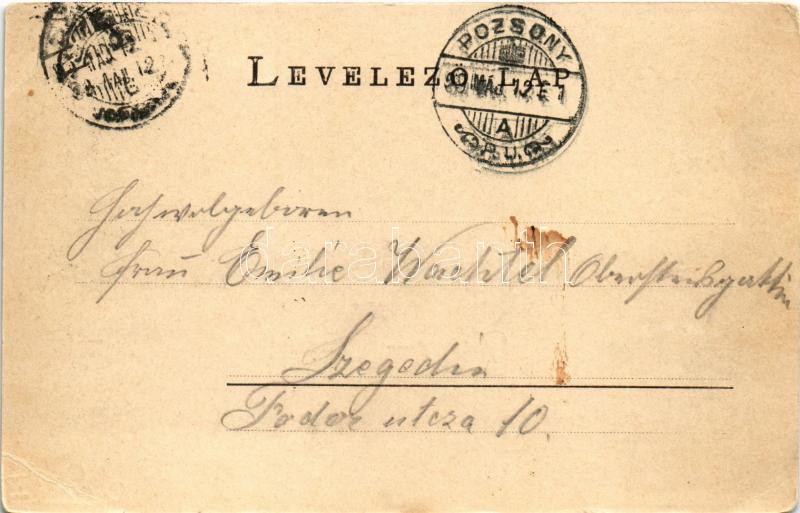 LEVELEZŐ-LAP
POZSONY
A
P.U.
Hochwolgeboren
Frau Emilie Wachtel Oberstensgattin
Szegedin
Fodor utcza 10.
darabanth